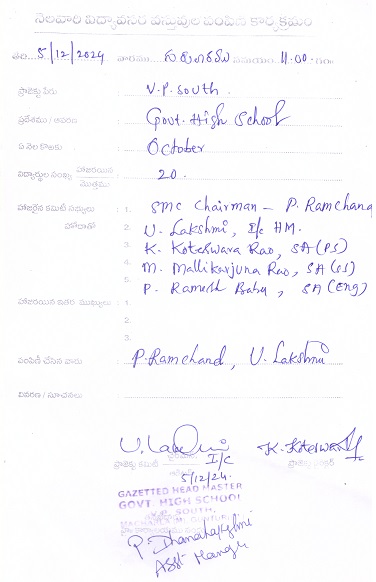 నెలవారీ విద్యావసర వస్తువుల పంపిణీ కార్యక్రమం
తేది 5/12/2024 వారము గురువారము సమయం 11.00 గం.
ప్రాజెక్టు పేరు V.P. South.
ప్రదేశము / Govt. High School
ఏ నెల కొరకు October
విద్యార్థుల సంఖ్య హాజరయిన / మొత్తము 20.
హాజరైన కమిటీ సభ్యులు : 1. SMC Chairman – P. Ramchand
హోదాతో 2. U. Lakshmi, I/c HM.
3. K. Koteswara Rao, SA (PS)
4. M. Mallikarjuna Rao, SA (SS)
5. P. Ramesh Babu, SA (Eng)
హాజరయిన ఇతర ముఖ్యులు : 1.
2.
3.
పంపిణీ చేసిన వారు P. Ramchand, U. Lakshmi
వివరణ / సూచనలు
U. Lakshmi I/C K. Koteswara
ప్రాజెక్టు కమిటీ
5/12/24.
GAZETTED HEAD MASTER
GOVT. HIGH SCHOOL
V.P. SOUTH,
P. Dhanalakshmi
Asst Manger